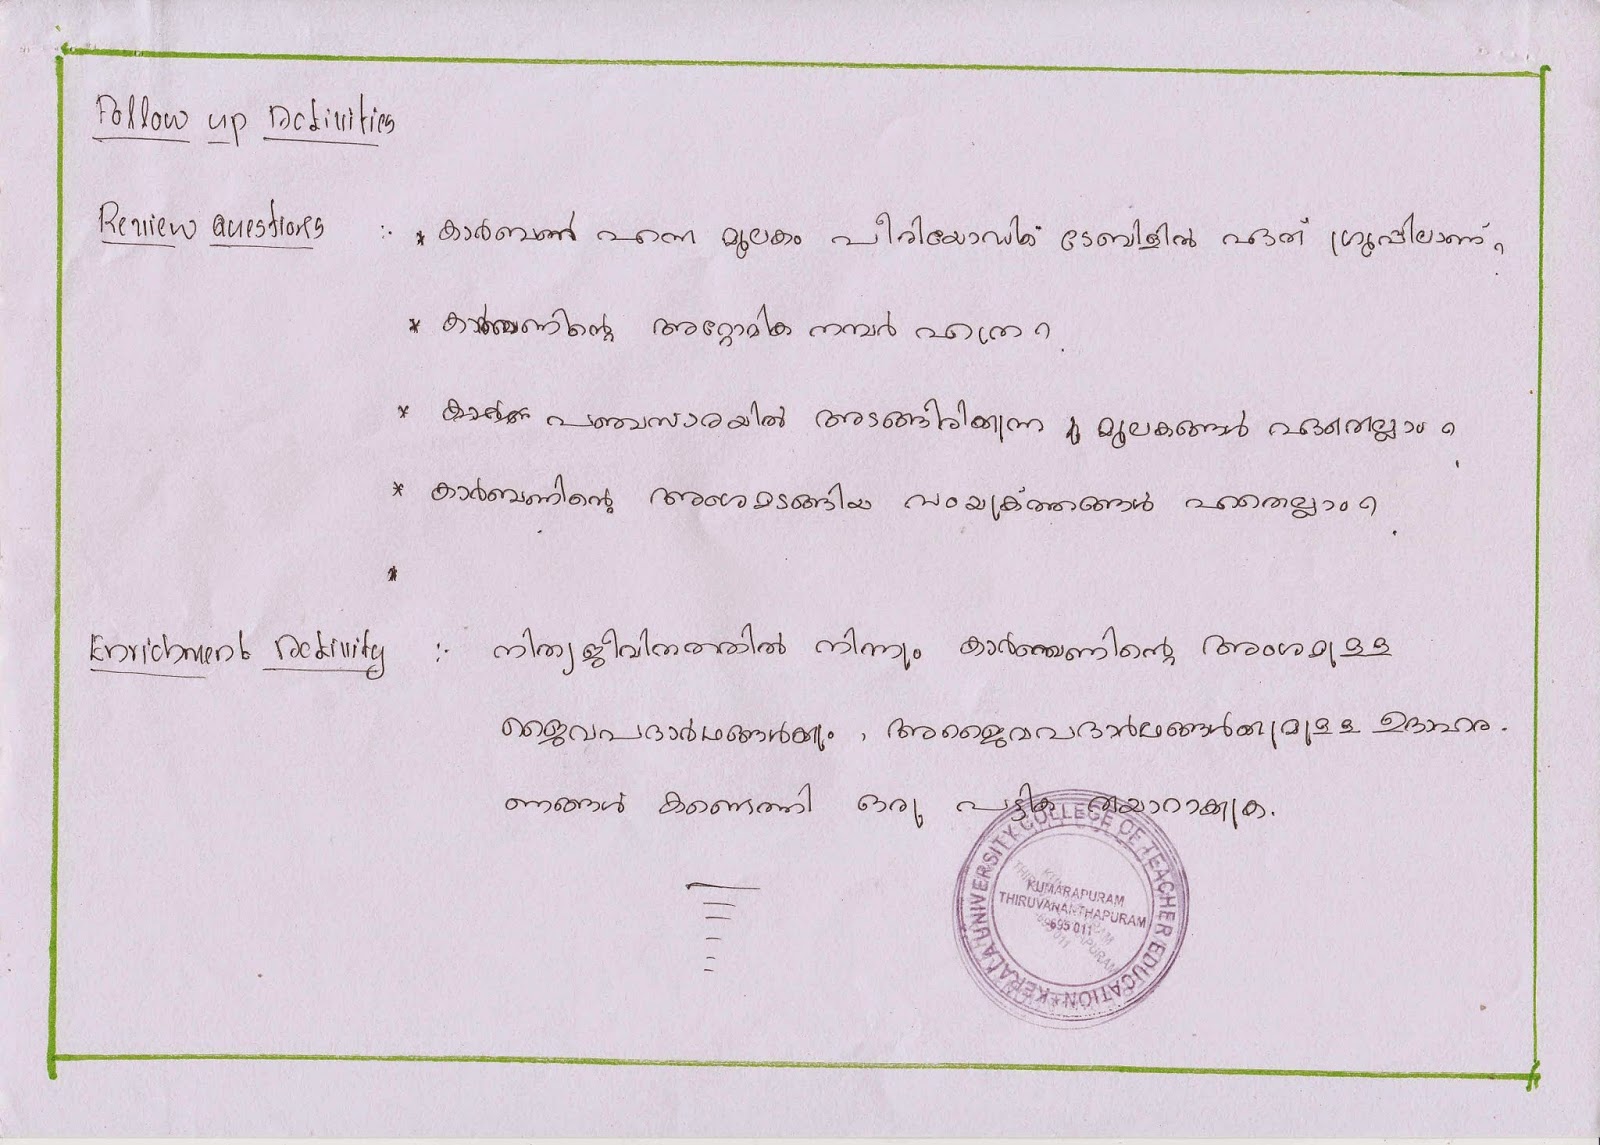 Follow up Activities
Review Questions :- * കാർബൺ എന്ന മൂലകം പീരിയോഡിക് ടേബിളിൽ ഏത് ഗ്രൂപ്പിലാണ്?
* കാർബണിന്റെ അറ്റോമിക നമ്പർ എത്ര?
* പഞ്ചസാരയിൽ അടങ്ങിരിക്കുന്ന മൂലകങ്ങൾ ഏതെല്ലാം?
* കാർബണിന്റെ അംശമടങ്ങിയ സംയുക്തങ്ങൾ ഏതെല്ലാം?
*
Enrichment Activity :- നിത്യജീവിതത്തിൽ നിന്നും കാർബണിന്റെ അംശമുള്ള
ജൈവപദാർഥങ്ങൾക്കും, അജൈവപദാർഥങ്ങൾക്കുമുള്ള ഉദാഹര-
ണങ്ങൾ കണ്ടെത്തി ഒരു പട്ടിക തയാറാക്കുക.
KERALA UNIVERSITY COLLEGE OF TEACHER EDUCATION
KUMARAPURAM
THIRUVANANTHAPURAM
695 011